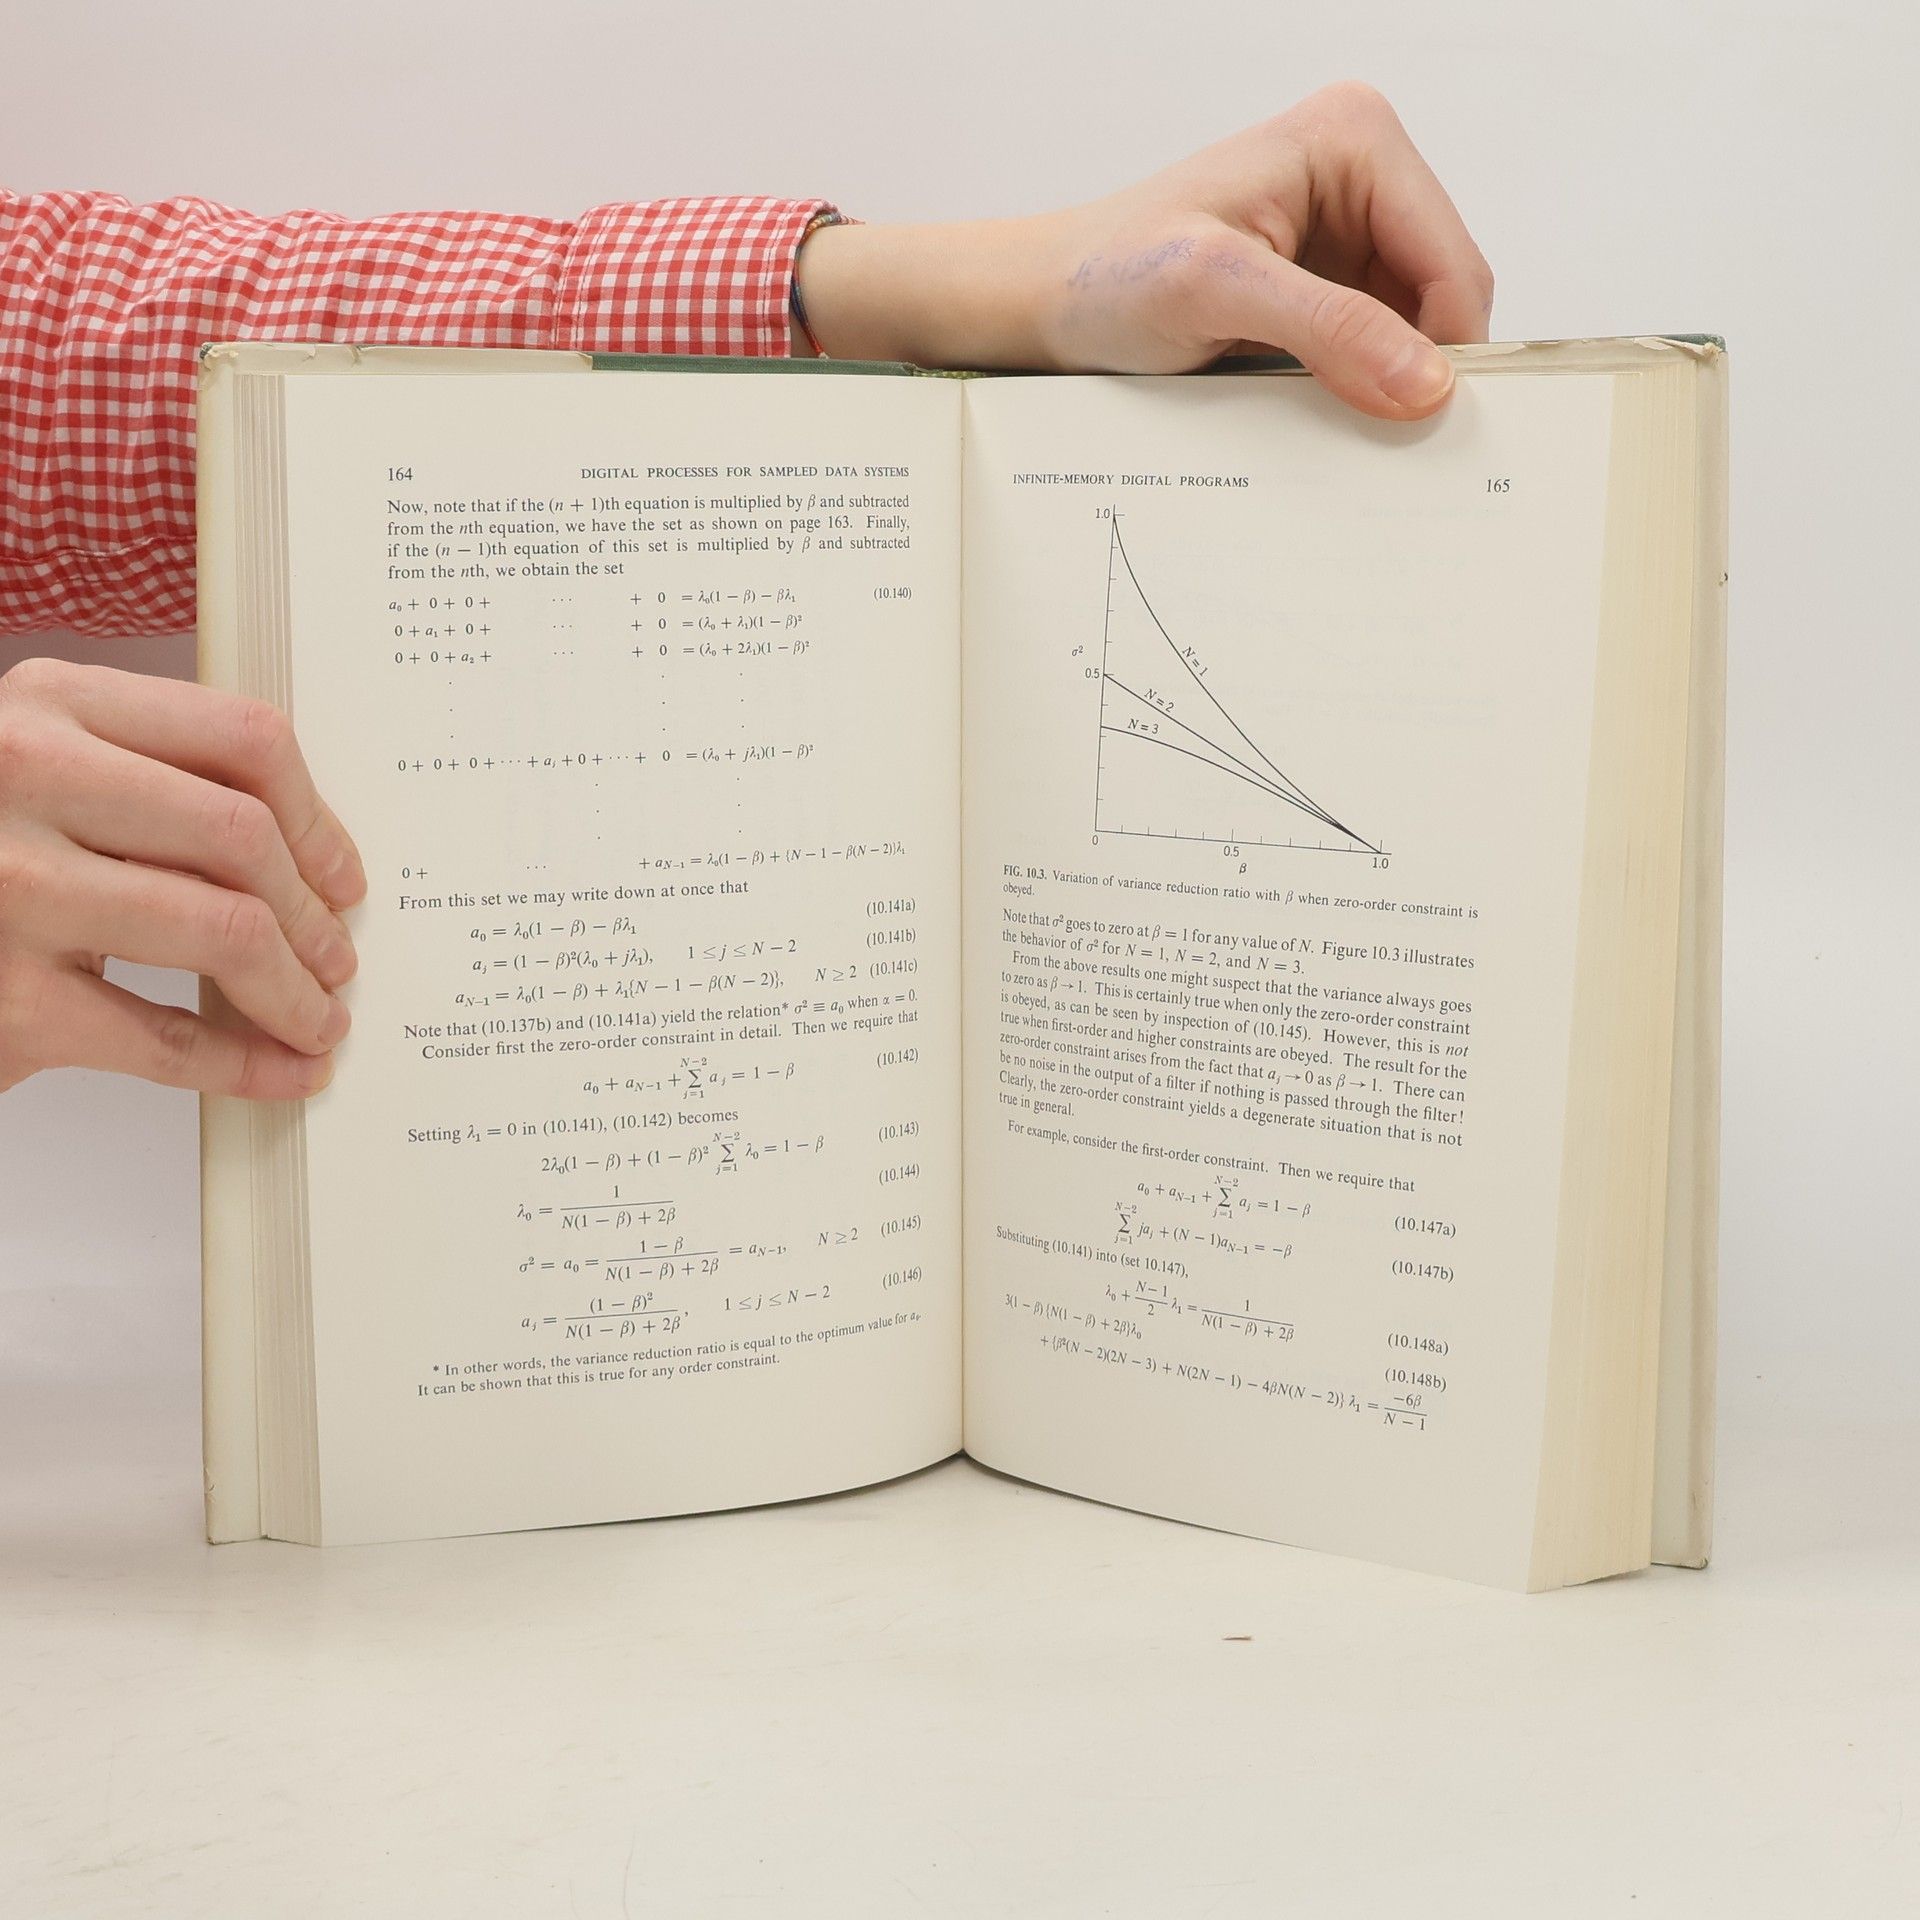 164 DIGITAL PROCESSES FOR SAMPLED DATA SYSTEMS
Now, note that if the (n + 1)th equation is multiplied by β and subtracted
from the nth equation, we have the set as shown on page 163. Finally,
if the (n − 1)th equation of this set is multiplied by β and subtracted
from the nth, we obtain the set
a₀ + 0 + 0 + ··· + 0 = λ₀(1 − β) − βλ₁ (10.140)
0 + a₁ + 0 + ··· + 0 = (λ₀ + λ₁)(1 − β)²
0 + 0 + a₂ + ··· + 0 = (λ₀ + 2λ₁)(1 − β)²
0 + 0 + 0 + ··· + aⱼ + 0 + ··· + 0 = (λ₀ + jλ₁)(1 − β)²
0 + ··· + a_{N−1} = λ₀(1 − β) + {N − 1 − β(N − 2)}λ₁
From this set we may write down at once that
a₀ = λ₀(1 − β) − βλ₁ (10.141a)
aⱼ = (1 − β)²(λ₀ + jλ₁), 1 ≤ j ≤ N − 2 (10.141b)
a_{N−1} = λ₀(1 − β) + λ₁{N − 1 − β(N − 2)}, N ≥ 2 (10.141c)
Note that (10.137b) and (10.141a) yield the relation* σ² ≡ a₀ when α = 0.
Consider first the zero-order constraint in detail. Then we require that
a₀ + a_{N−1} + ∑_{j=1}^{N−2} aⱼ = 1 − β (10.142)
Setting λ₁ = 0 in (10.141), (10.142) becomes
2λ₀(1 − β) + (1 − β)² ∑_{j=1}^{N−2} λ₀ = 1 − β (10.143)
λ₀ = 1 / (N(1 − β) + 2β) (10.144)
σ² = a₀ = (1 − β) / (N(1 − β) + 2β) = a_{N−1}, N ≥ 2 (10.145)
aⱼ = (1 − β)² / (N(1 − β) + 2β), 1 ≤ j ≤ N − 2 (10.146)
* In other words, the variance reduction ratio is equal to the optimum value for a₀.
It can be shown that this is true for any order constraint.
INFINITE-MEMORY DIGITAL PROGRAMS 165
1.0
σ²
N = 1
0.5
N = 2
N = 3
0 0.5 1.0
β
FIG. 10.3. Variation of variance reduction ratio with β when zero-order constraint is
obeyed.
Note that σ² goes to zero at β = 1 for any value of N. Figure 10.3 illustrates
the behavior of σ² for N = 1, N = 2, and N = 3.
From the above results one might suspect that the variance always goes
to zero as β → 1. This is certainly true when only the zero-order constraint
is obeyed, as can be seen by inspection of (10.145). However, this is not
true when first-order and higher constraints are obeyed. The result for the
zero-order constraint arises from the fact that aⱼ → 0 as β → 1. There can
be no noise in the output of a filter if nothing is passed through the filter!
Clearly, the zero-order constraint yields a degenerate situation that is not
true in general.
For example, consider the first-order constraint. Then we require that
a₀ + a_{N−1} + ∑_{j=1}^{N−2} aⱼ = 1 − β (10.147a)
∑_{j=1}^{N−2} jaⱼ + (N − 1)a_{N−1} = −β (10.147b)
Substituting (10.141) into (set 10.147),
λ₀ + (N − 1)/2 λ₁ = 1 / (N(1 − β) + 2β) (10.148a)
3(1 − β){N(1 − β) + 2β}λ₀ (10.148b)
+ {β²(N − 2)(2N − 3) + N(2N − 1) − 4βN(N − 2)} λ₁ = −6β / (N − 1)